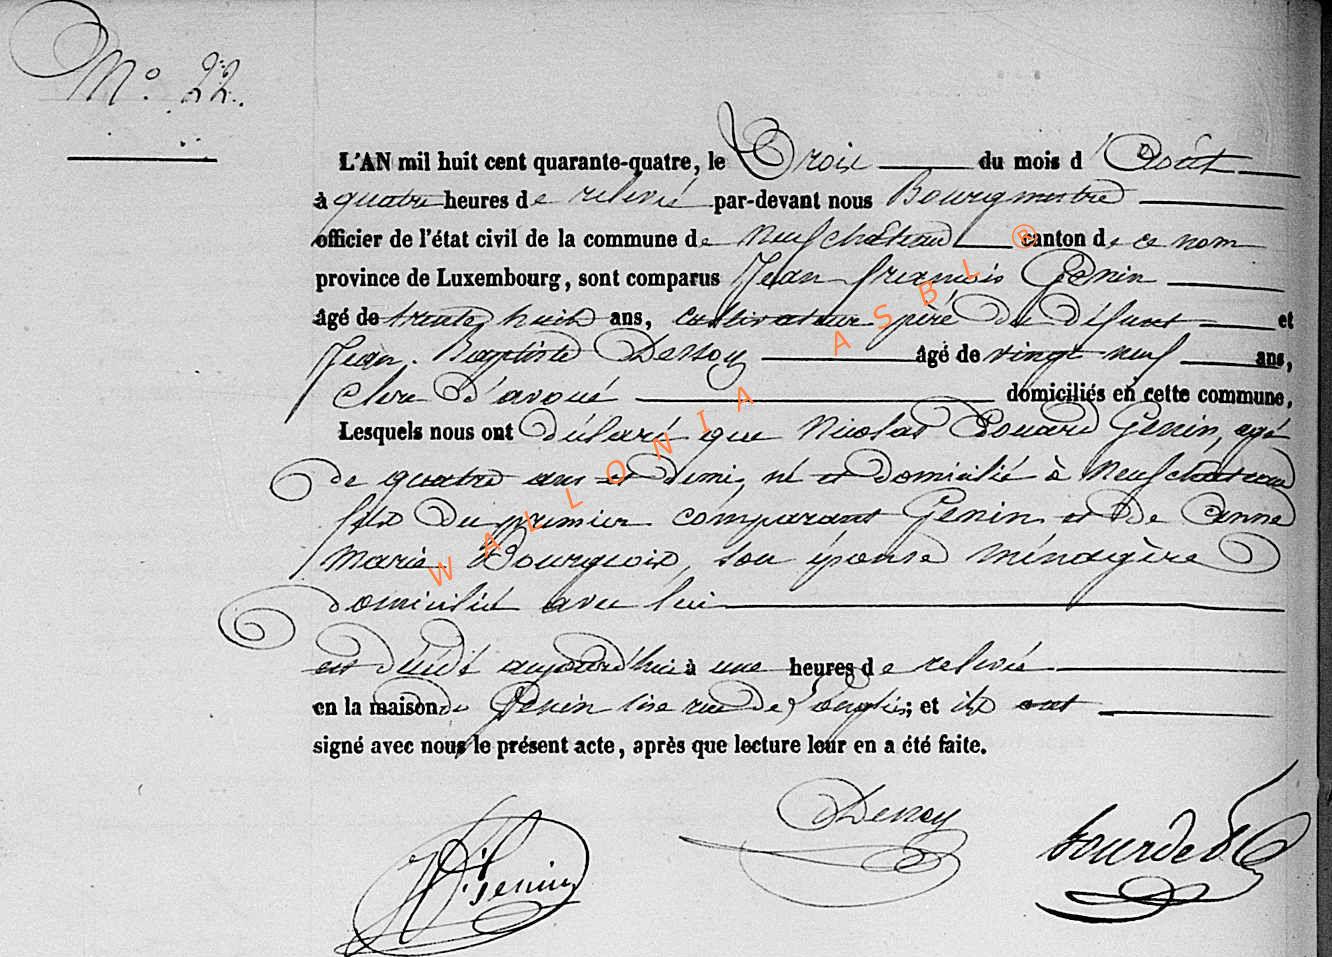 N° 22.
L'AN mil huit cent quarante-quatre, le Trois du mois d'Août
à quatre heures de relevé par-devant nous Bourgmestre
officier de l'état civil de la commune de Neufchâteau canton de ce nom
province de Luxembourg, sont comparus Jean françois Génin
âgé de trente huit ans, cultivateur père du défunt et
Jean Baptiste Dessoy âgé de vingt neuf ans,
clerc d'avoué domiciliés en cette commune,
Lesquels nous ont déclaré que Nicolas Edouard Génin, agé
de quatre ans et demi, né et domicilié à Neufchateau
fils du premier comparant Génin et de Anne
Marie Bourgeois, son épouse ménagère
domicilié avec lui
est décédé aujourd'hui à une heures de relevé
en la maison du Génin sise rue de l'église; et ils ont
signé avec nous le présent acte, après que lecture leur en a été faite.
Dessoy
WALLONIA ASBL ®